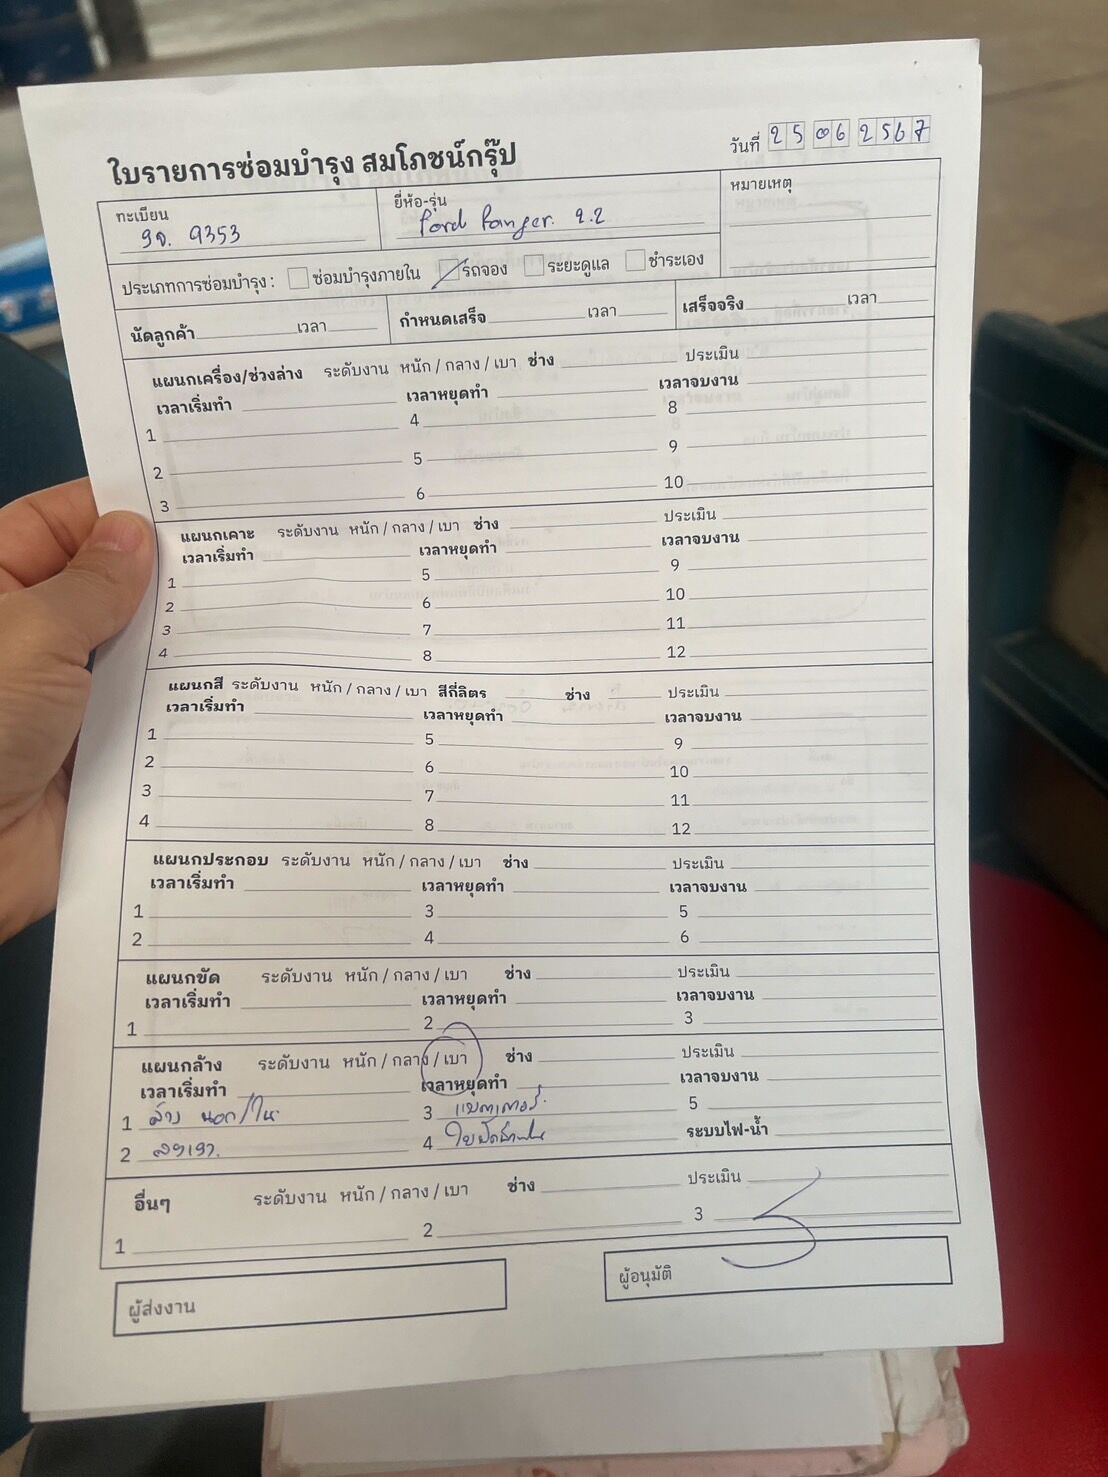 ใบรายการซ่อมบำรุง สมโภชน์กรุ๊ป
วันที่ 25 06 2567
ทะเบียน
9353
ยี่ห้อ-รุ่น
Ford Ranger. 2.2
หมายเหตุ
ประเภทการซ่อมบำรุง : ซ่อมบำรุงภายใน รถจอง ระยะดูแล ชำระเอง
นัดลูกค้า เวลา กำหนดเสร็จ เวลา เสร็จจริง เวลา
แผนกเครื่อง/ช่วงล่าง ระดับงาน หนัก / กลาง / เบา ช่าง ประเมิน
เวลาเริ่มทำ เวลาหยุดทำ เวลาจบงาน
1 4 8
2 5 9
3 6 10
แผนกเคาะ ระดับงาน หนัก / กลาง / เบา ช่าง ประเมิน
เวลาเริ่มทำ เวลาหยุดทำ เวลาจบงาน
1 5 9
2 6 10
3 7 11
4 8 12
แผนกสี ระดับงาน หนัก / กลาง / เบา สีกี่ลิตร ช่าง ประเมิน
เวลาเริ่มทำ เวลาหยุดทำ เวลาจบงาน
1 5 9
2 6 10
3 7 11
4 8 12
แผนกประกอบ ระดับงาน หนัก / กลาง / เบา ช่าง ประเมิน
เวลาเริ่มทำ เวลาหยุดทำ เวลาจบงาน
1 3 5
2 4 6
แผนกขัด ระดับงาน หนัก / กลาง / เบา ช่าง ประเมิน
เวลาเริ่มทำ เวลาหยุดทำ เวลาจบงาน
1 2 3
แผนกล้าง ระดับงาน หนัก / กลาง / เบา ช่าง ประเมิน
เวลาเริ่มทำ เวลาหยุดทำ เวลาจบงาน
1 ล้าง นอก/ใน 3 แบตเตอรี่ 5
2 4 ใบปัดน้ำฝน ระบบไฟ-น้ำ
อื่นๆ ระดับงาน หนัก / กลาง / เบา ช่าง ประเมิน
1 2 3
ผู้ส่งงาน
ผู้อนุมัติ